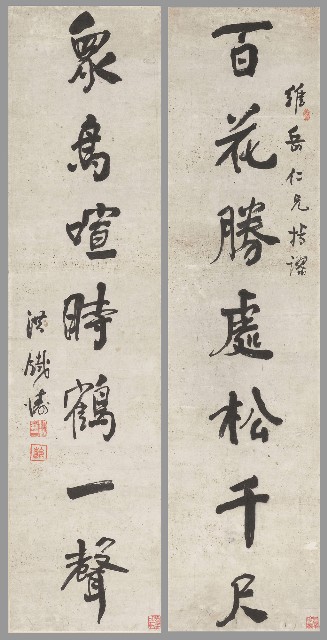 百花勝處松千尺
雄岳仁兄指謬
衆鳥喧時鶴一聲
洪鐵濤